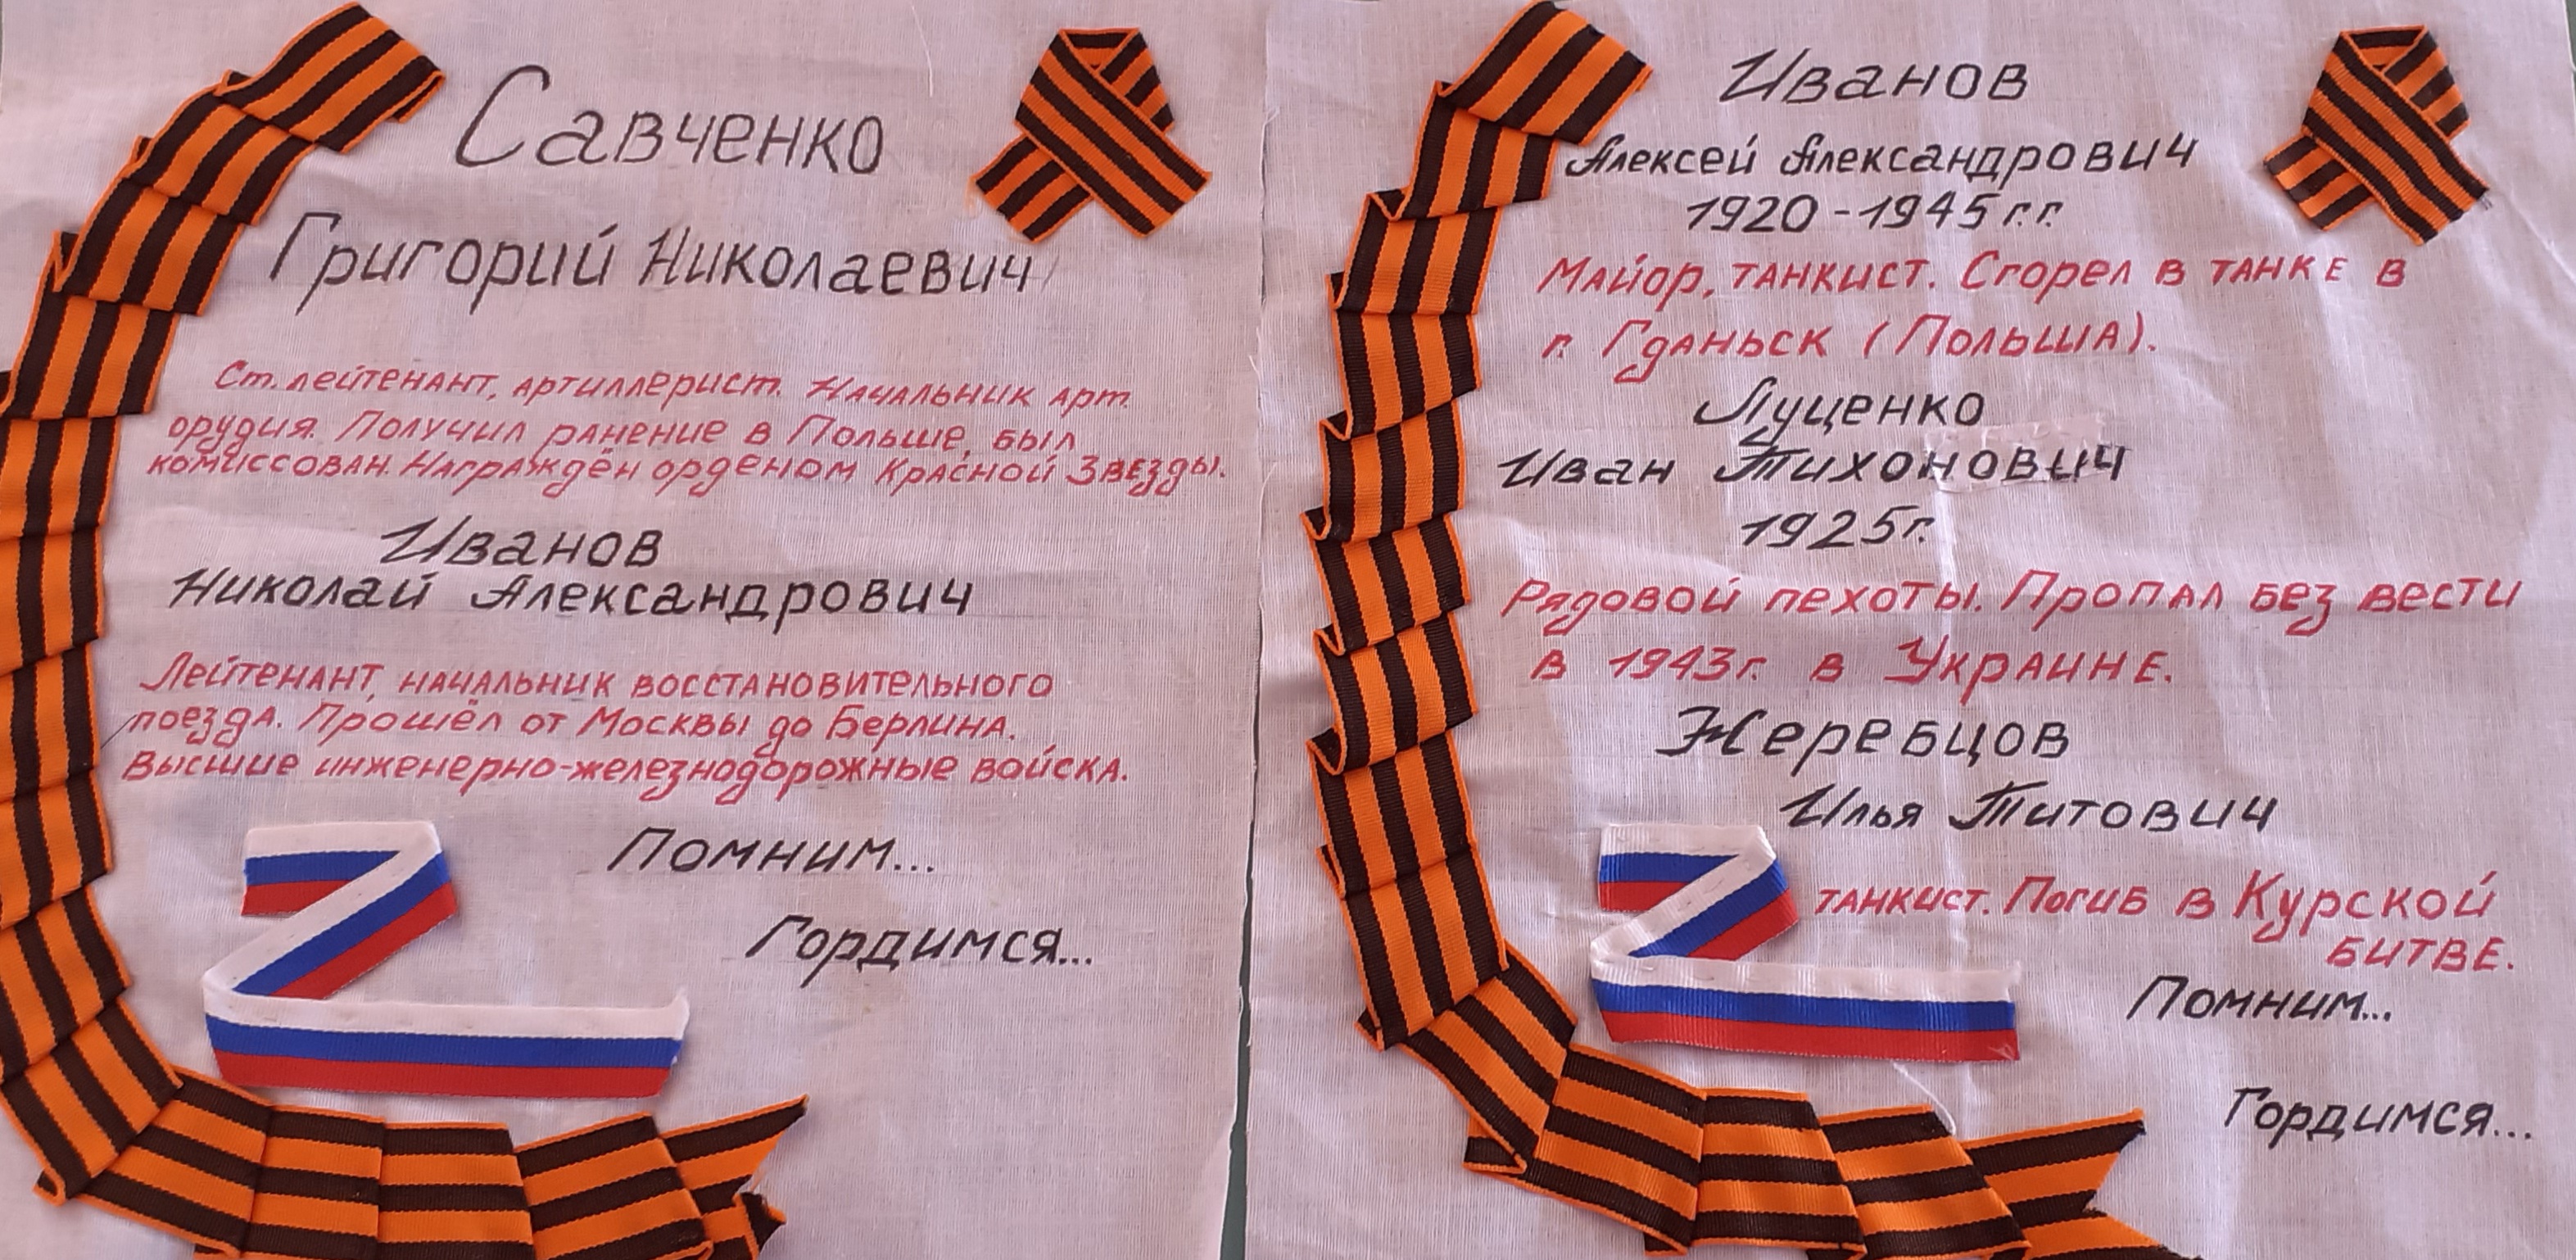 Савченко
Григорий Николаевич
Ст. лейтенант, артиллерист. Начальник арт.
орудия. Получил ранение в Польше, был
комиссован. Награждён орденом Красной Звезды.
Иванов
Николай Александрович
Лейтенант, начальник восстановительного
поезда. Прошёл от Москвы до Берлина.
Высшие инженерно-железнодорожные войска.
Помним...
Гордимся...
Иванов
Алексей Александрович
1920-1945 г.г.
Майор, танкист. Сгорел в танке в
г. Гданьск (Польша).
Луценко
Иван Тихонович
1925г.
Рядовой пехоты. Пропал без вести
в 1943г. в Украине.
Жеребцов
Илья Титович
танкист. Погиб в Курской
битве.
Помним...
Гордимся...